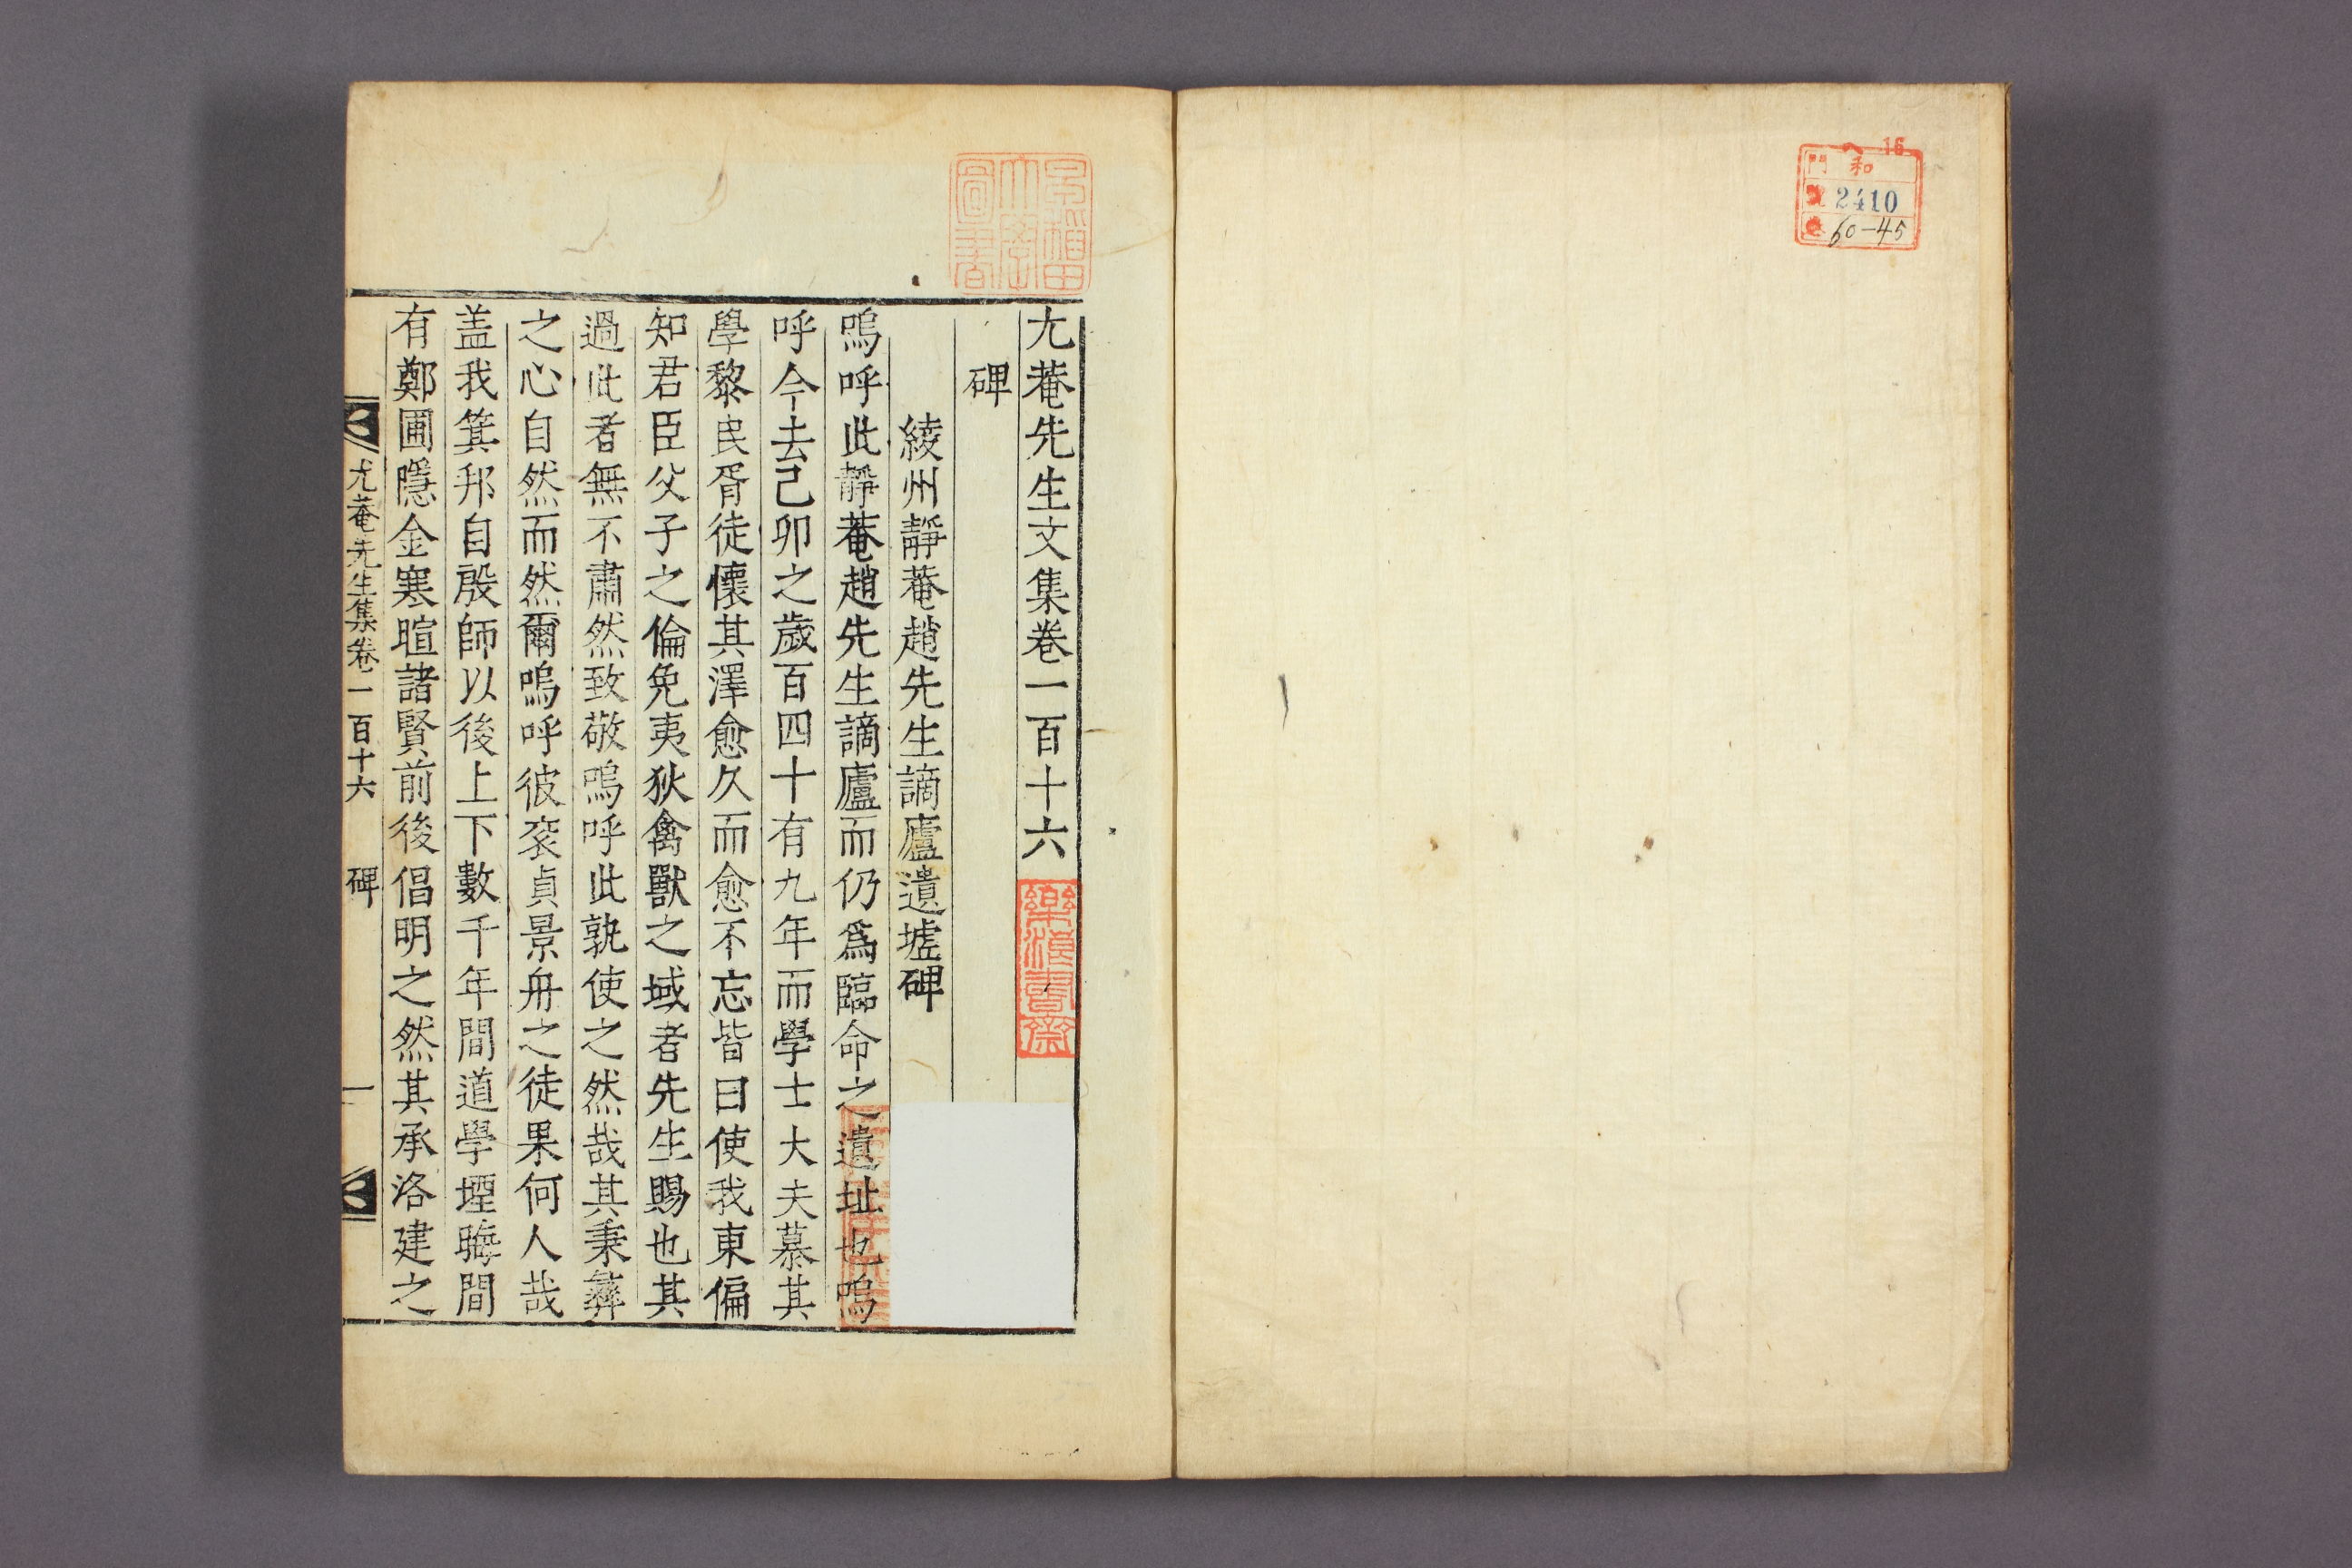 16
門 和
2410
60-45
早稲田大學圖書
尤菴先生文集卷一百十六
樂浪書齋
碑
綾州靜菴趙先生謫廬遺墟碑
嗚呼此靜菴趙先生謫廬而仍爲臨命之遺址也嗚
呼今去己卯之歲百四十有九年而學士大夫慕其
學黎民胥徒懷其澤愈久而愈不忘皆曰使我東偏
知君臣父子之倫免夷狄禽獸之域者先生賜也其
過此者無不肅然致敬嗚呼此孰使之然哉其秉彝
之心自然而然爾嗚呼彼袞貞景舟之徒果何人哉
盖我箕邦自殷師以後上下數千年間道學堙晦間
有鄭圃隱金寒暄諸賢前後倡明之然其承洛建之
尤菴先生集卷一百十六 碑 一